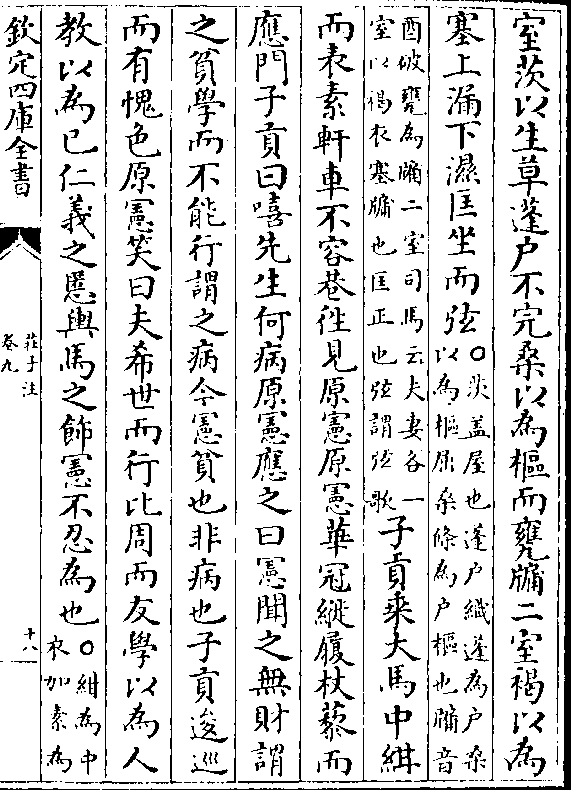 室茨以生草蓬户不完桑以為樞而甕牖二室褐以為
塞上漏下濕匡坐而弦○茨盖屋也蓬户織蓬為户桑
以為樞屈桑條為户樞也牖音
酉破甕為牖二室司馬云夫妻各一
室以褐衣塞牖也匡正也弦謂弦歌
子貢乗大馬中紺
而表素軒車不容巷徃見原憲原憲華冠縰履杖藜而
應門子貢曰嘻先生何病原憲應之曰憲聞之無財謂
之貧學而不能行謂之病今憲貧也非病也子貢逡巡
而有愧色原憲笑曰夫希世而行比周而友學以為人
教以為已仁義之慝輿馬之飾憲不忍為也○紺為中
衣加素為
欽定四庫全書
莊子注
卷九
十八